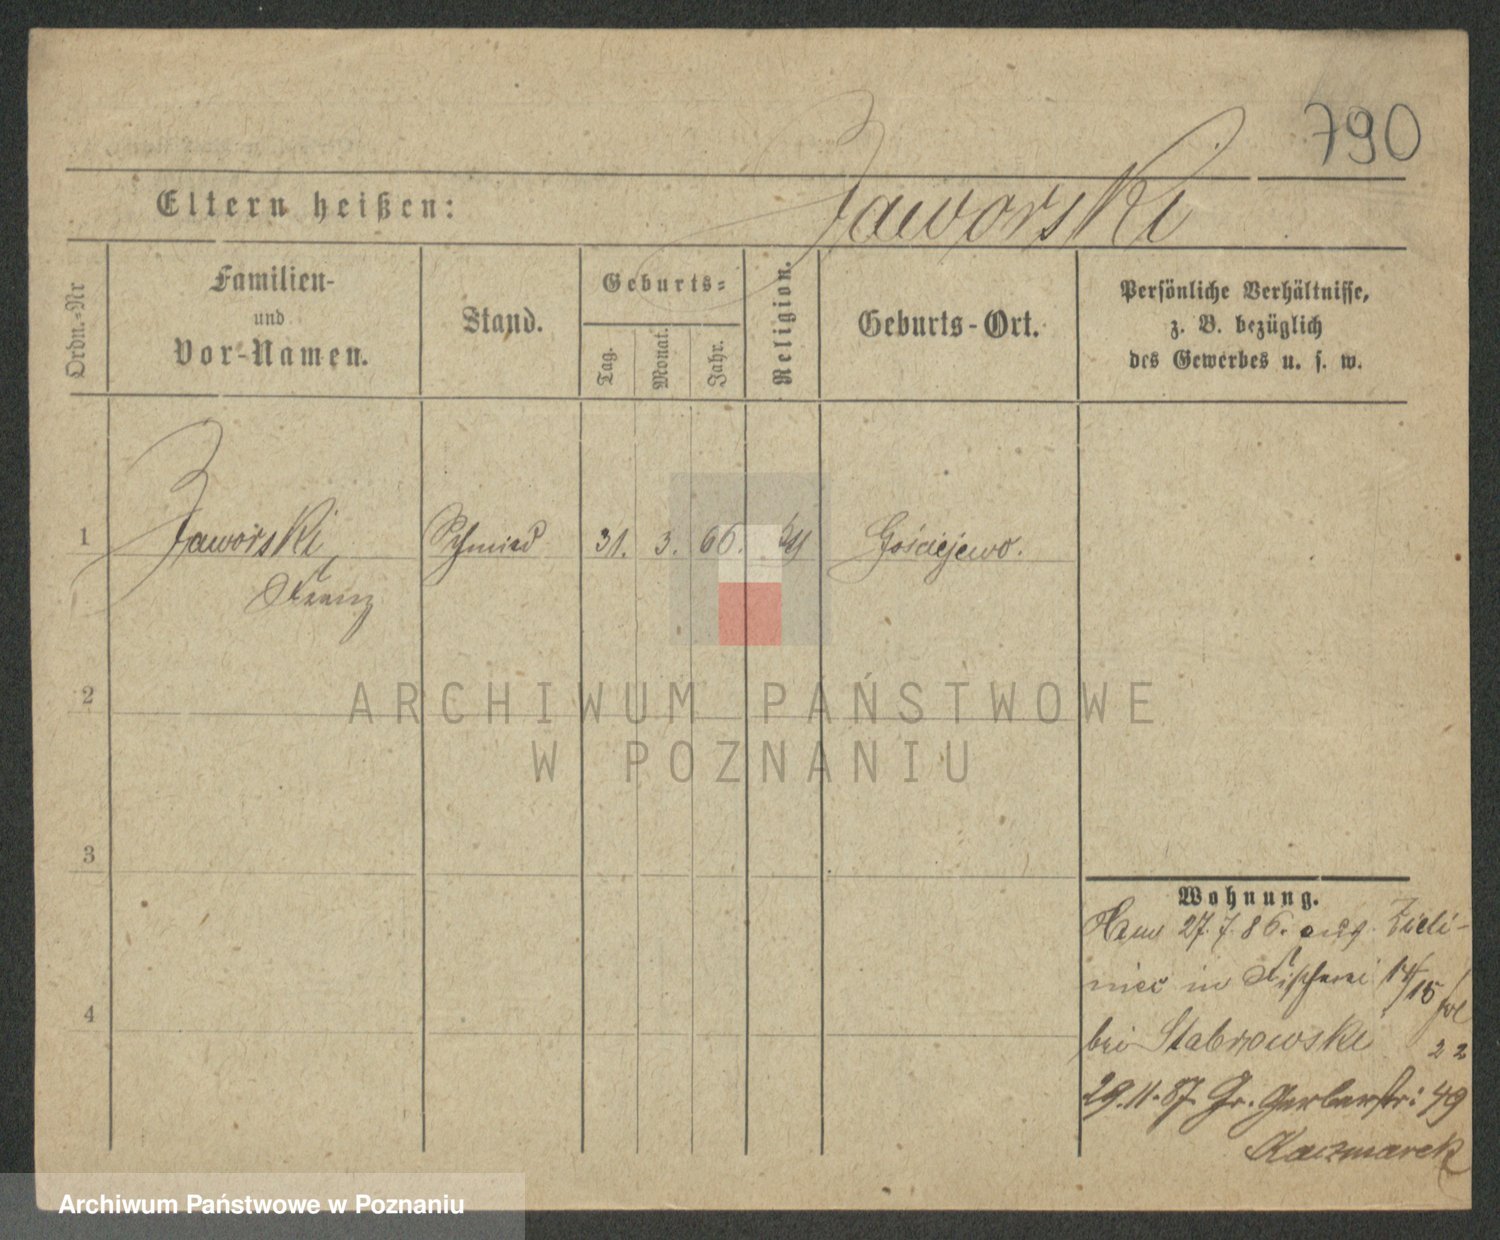 790
Eltern heißen: Jaworski
Ordn.-Nr
Familien-
und
Vor-Namen.
Stand.
Geburts-
Tag.
Monat.
Jahr.
Religion.
Geburts-Ort.
Persönliche Verhältnisse,
z. B. bezüglich
des Gewerbes u. s. w.
1 Jaworski Schmied 31. 3. 66. Gościejewo.
Franz
2
3
4
ARCHIWUM PAŃSTWOWE
W POZNANIU
Wohnung.
27.7.86. Zieli-
niec in Fischerei 14/15
bei Stabrowski 22
29.11.87. Gr. Gerberstr: 49
Kaczmarek
Archiwum Państwowe w Poznaniu